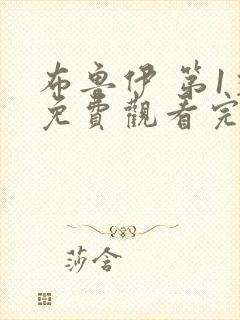 布魯伊 第1
免費觀看完
莎含